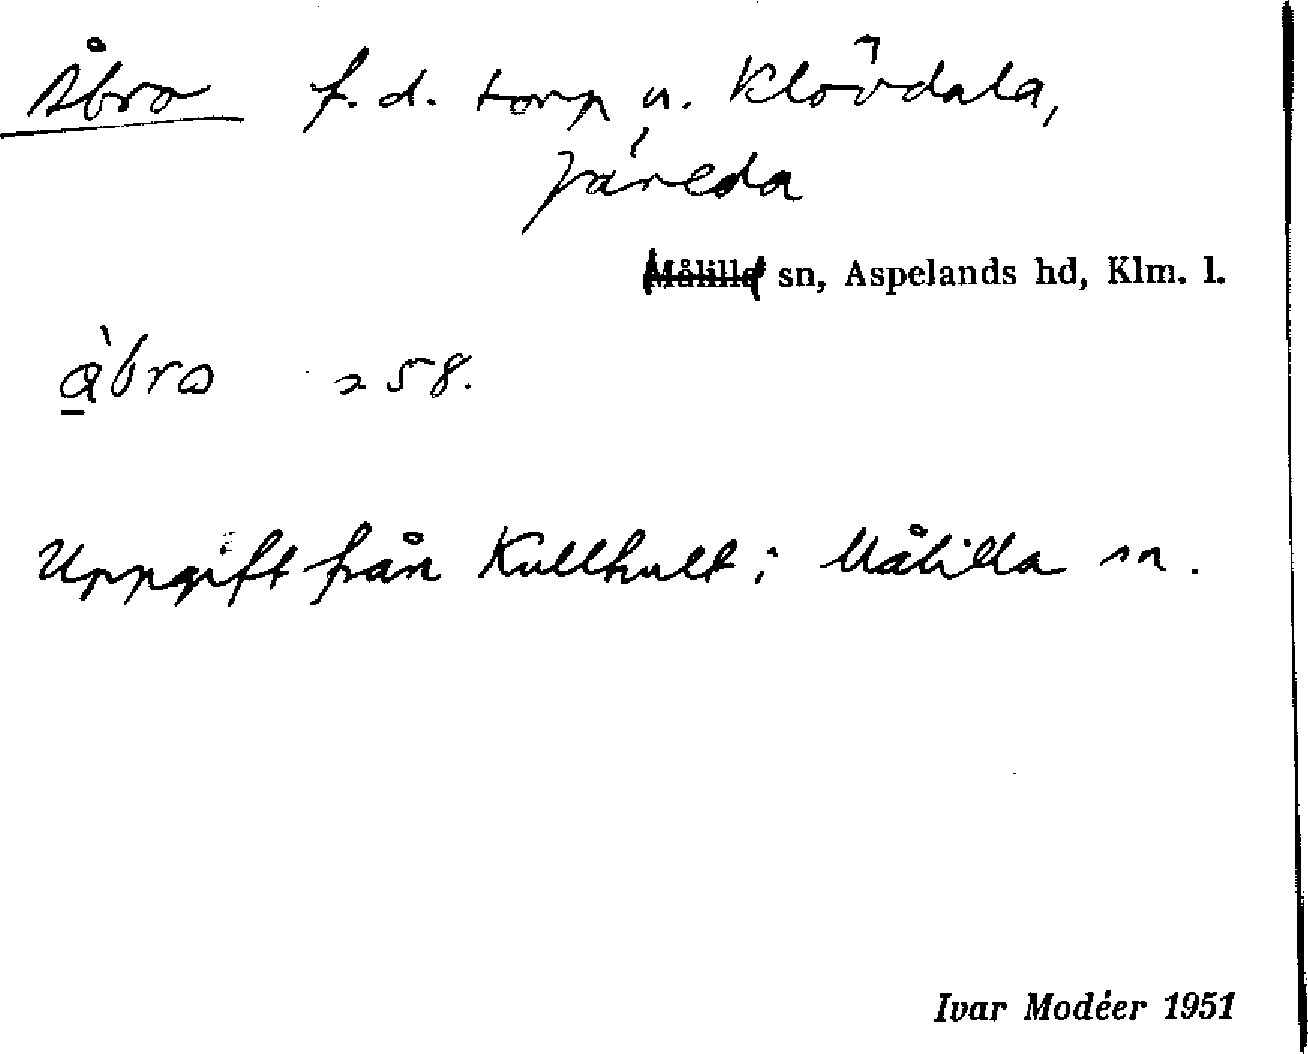 Åbro f. d. torp u. Klövdala,
Järeda
Målilla sn, Aspelands hd, Klm. l.
àbro 258.
Uppgift från Kullhult i Målilla sn.
Ivar Modéer 1951